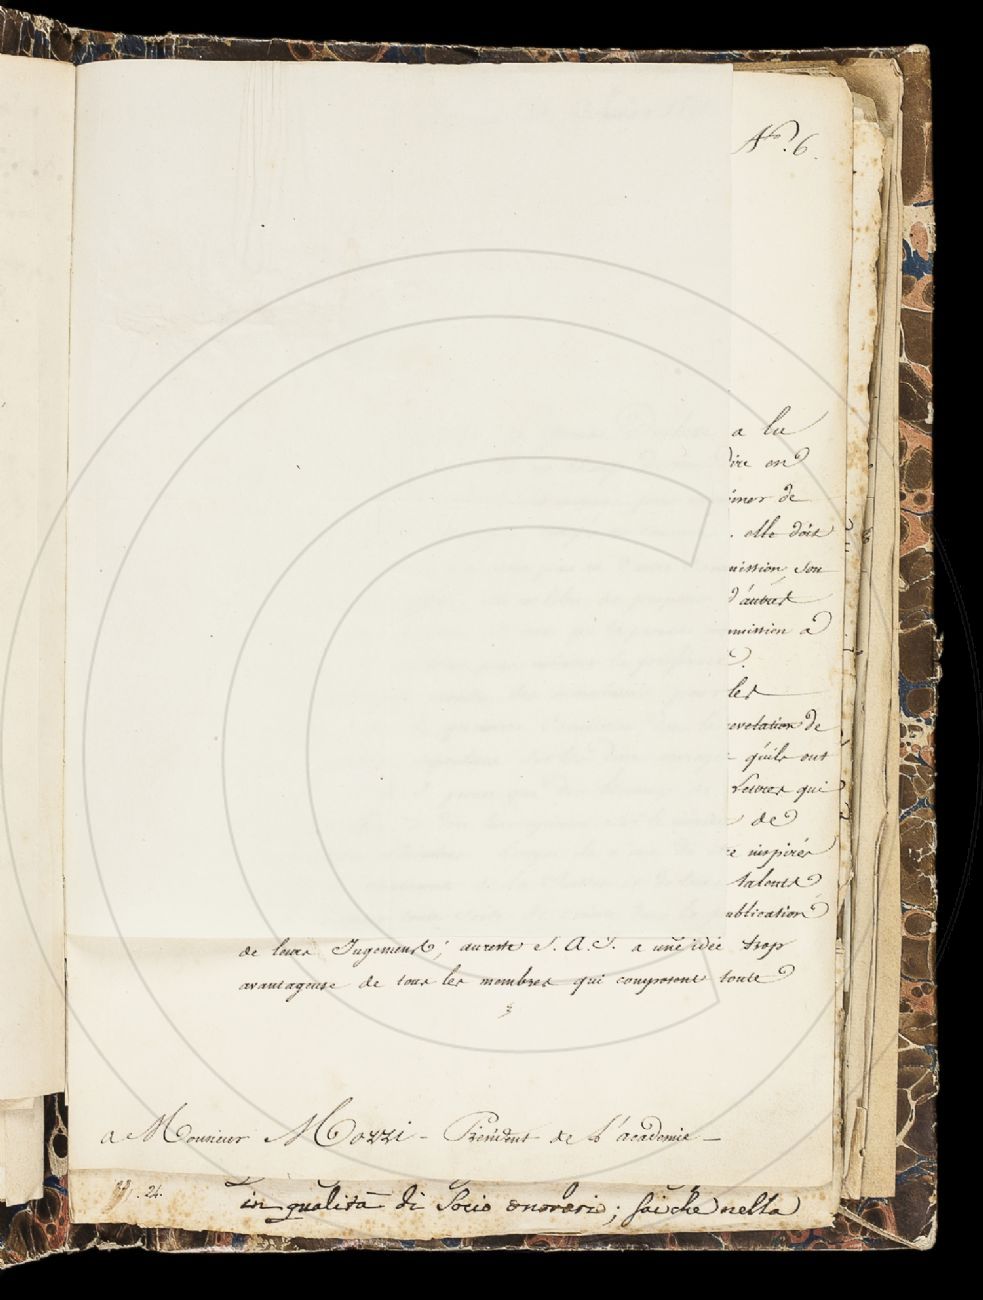 N.º 6.
a lu
ire en
iner de
. elle doit
mission, son
d'autres
mission a
les
revolation de
qu'ils ont
Lettres qui
de
e inspirés
talents
ublication
de leurs Jugements; aureste S. A. I. a une idée trop
avantageuse de tous les membres qui composent toute
a Monsieur Mozzi - Président de l'academie -
. 24.
in qualità di Socio onorario; sai che nella